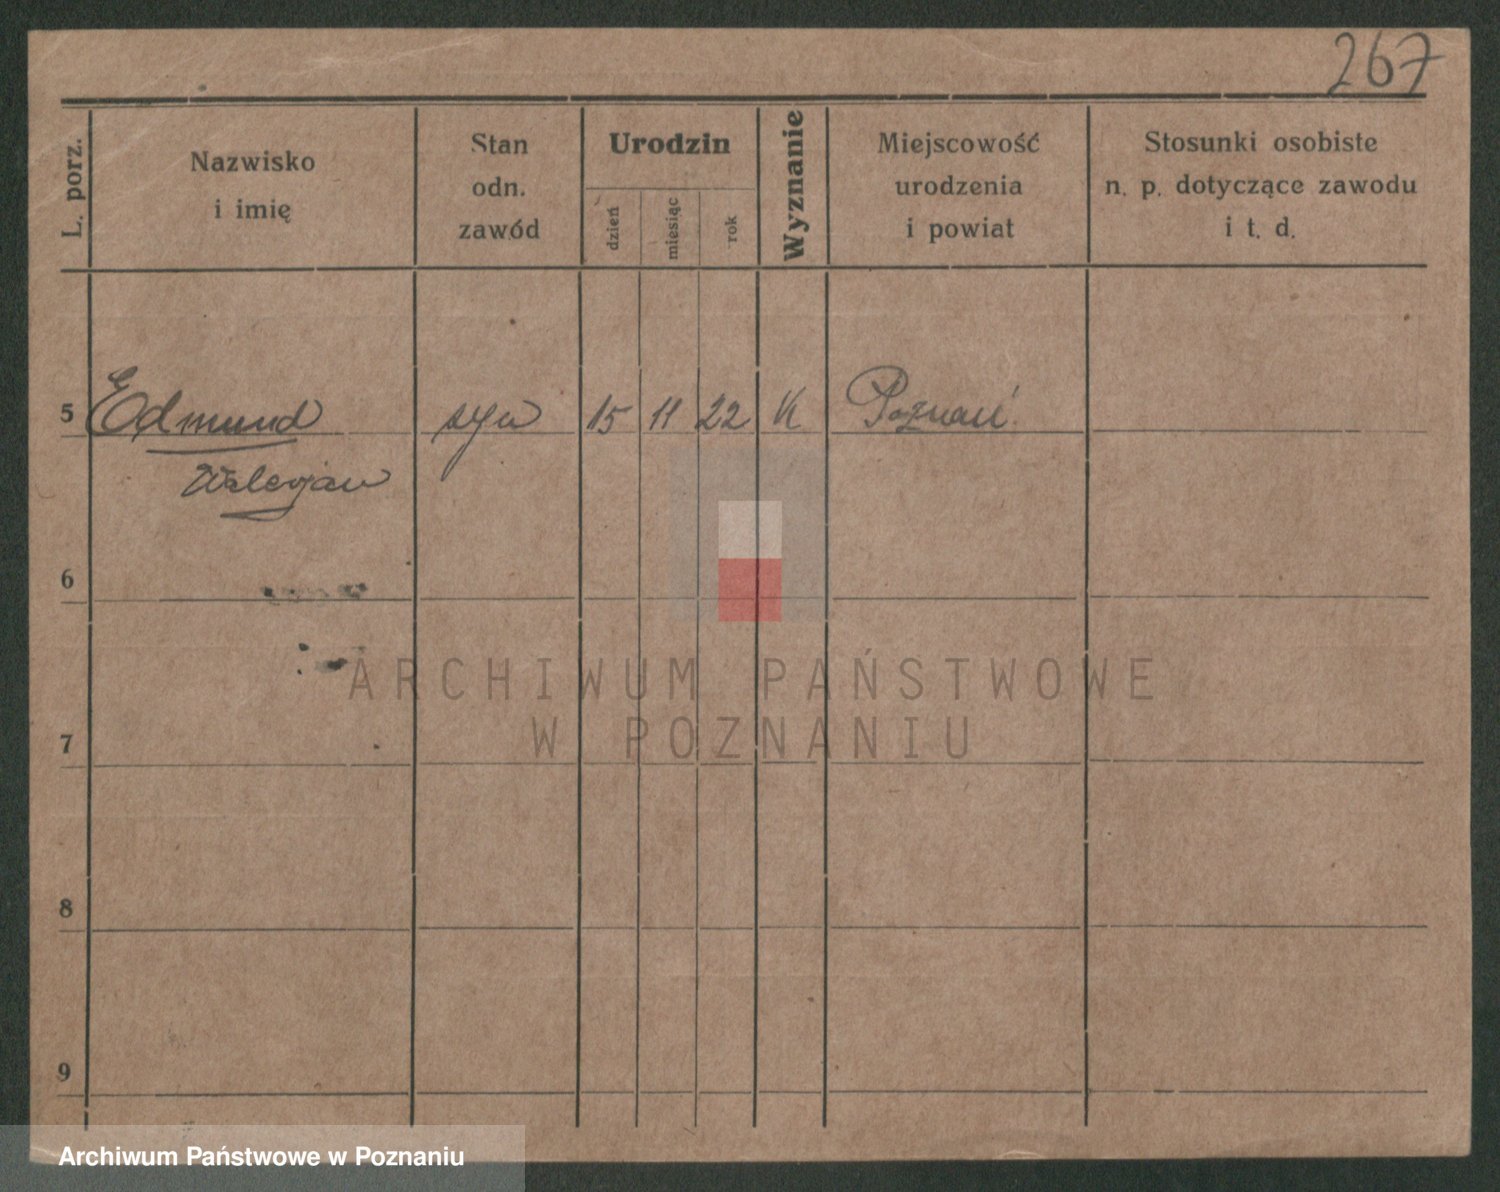 267
L. porz.
Nazwisko
i imię
Stan
odn.
zawód
Urodzin
dzień
miesiąc
rok
Wyznanie
Miejscowość
urodzenia
i powiat
Stosunki osobiste
n. p. dotyczące zawodu
i t. d.
5 Edmund syn 15 11 22 K Poznań.
Walerjan
6
7
8
9
ARCHIWUM PAŃSTWOWE
W POZNANIU
Archiwum Państwowe w Poznaniu